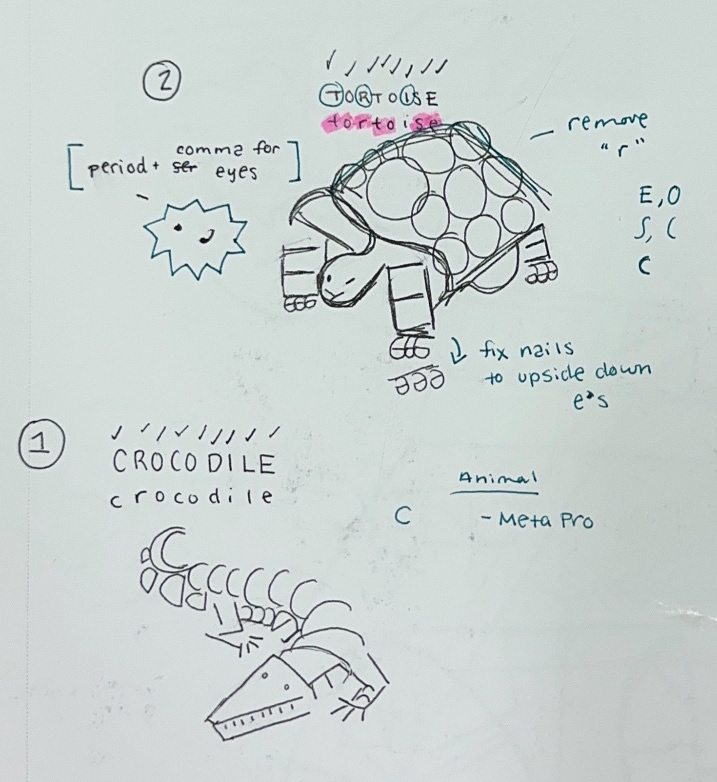 2
TORTOISE
tortoise
remove
"r"
[ period + comma for eyes ]
E, O
S, C
C
fix nails
to upside down
e's
1
CROCODILE
crocodile
Animal
C
- Meta Pro